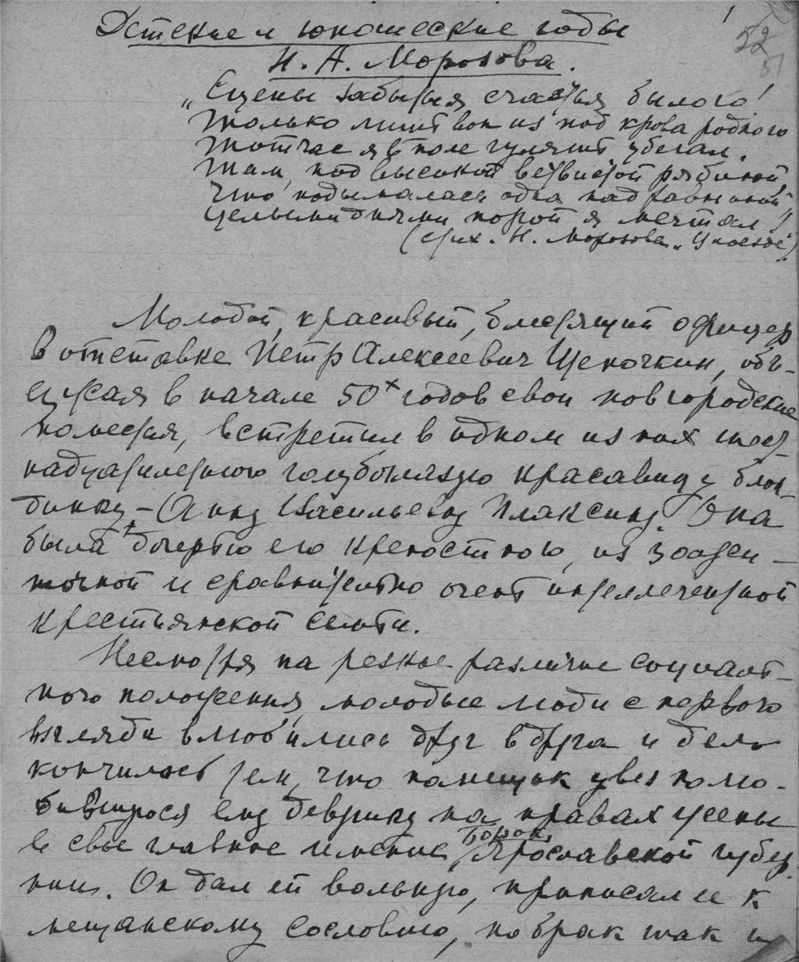 1
52
51
Детские и юношеские годы
Н. А. Морозова.
„Сцены забытыя счастья былого!
Только лишь вон из под крова родного
Тотчас я в поле гулять убегал.
Там, под высокой ветвистой рябиной,
Что подымалась одна над равниной
Целыми днями порой я мечтал"!
(стих. Н. Морозова
Молодой, красивый, блестящий офицер
в отставке Петр Алексеевич Щепочкин, объ-
езжая в начале 50х годов свои новгородские
поместья, встретил в одном из них шест-
надцатилетнюю голубоглазую красавицу блон-
динку – Анну Васильевну Плаксину. Она
была дочерью его крепостного, из зажи-
точной и сравнительно очень интеллигентной
крестьянской семьи.
Несмотря на резкое различие социаль-
ного положения, молодые люди с первого
взгляда влюбились друг в друга и дело
кончилось тем, что помещик увез полю-
бившуюся ему девушку на правах жены
в свое главное имение Борок, Ярославской губер-
нии. Он дал ей вольную, приписал ее к
мещанскому сословию, но брак так и